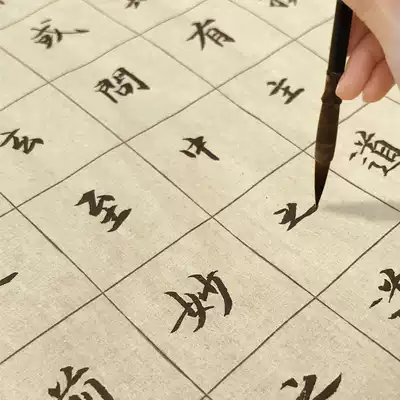 有主道
或問中之
玄至妙
前